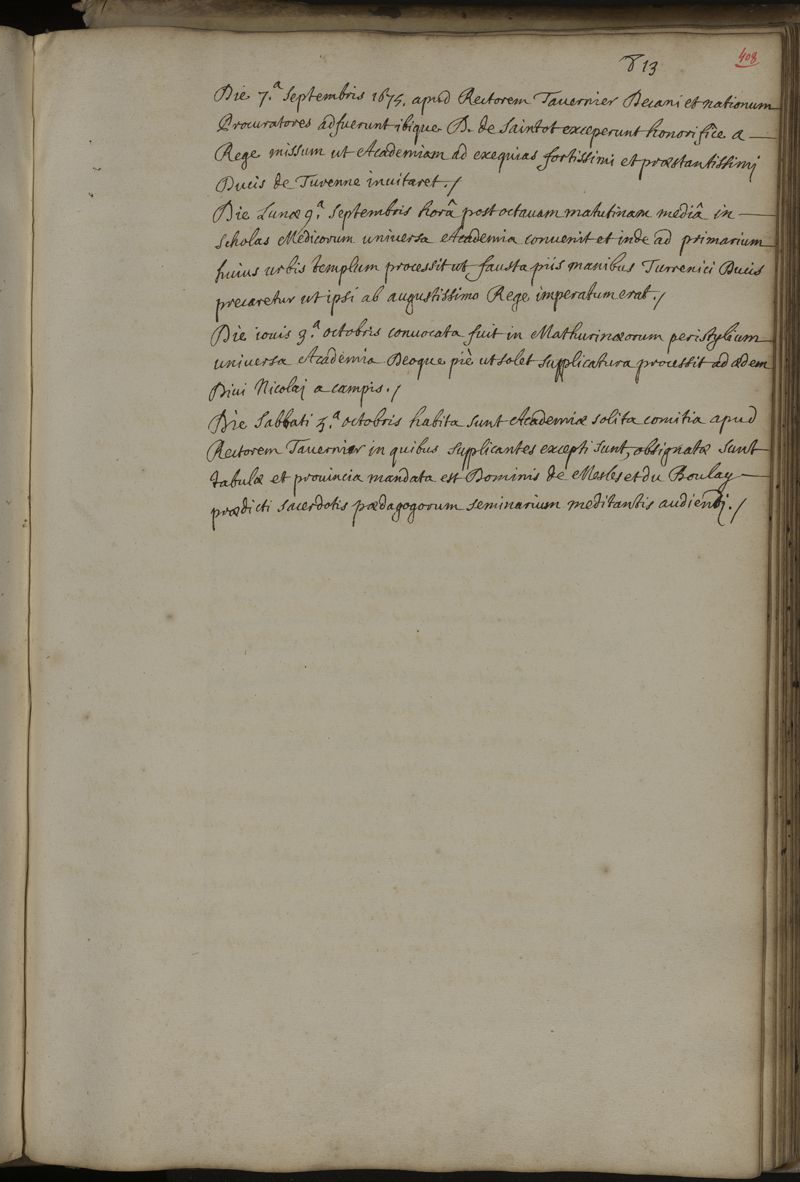 813
408
Die 7.ª Septembris 1675. apud Rectorem Tavernier Decani et nationum
Procuratores adfuerunt ibique D. de Saintot exceperunt honorifice a
Rege missum ut Academiam ad exequias fortissimi et præstantissimj
Ducis de Turenne inuitaret./
Die Lunæ 9.ª Septembris horâ post octauam matutinam mediâ in
scholas Medicorum uniuersa Academia conuenit et inde ad primarium
huius urbis templum processit ut fausta piis manibus Turrenici Ducis
precaretur ut ipsi ab augustissimo Rege imperatum erat./
Die iouis 9.ª octobris conuocata fuit in Mathurinæorum peristylium
uniuersa Academia Deoque piè ut solet supplicatura processit ad ædem
Diui Nicolaj a campis./
Die Sabbati 3.ª octobris habita sunt Academiæ solita comitia apud
Rectorem Tauernier in quibus supplicantes excepti sunt, obsignatæ sunt
tabulæ et prouincia mandata est Dominis de Mesles et du Boulay
prædicti sacerdotis pædagogorum seminarium meditantis audiendj./